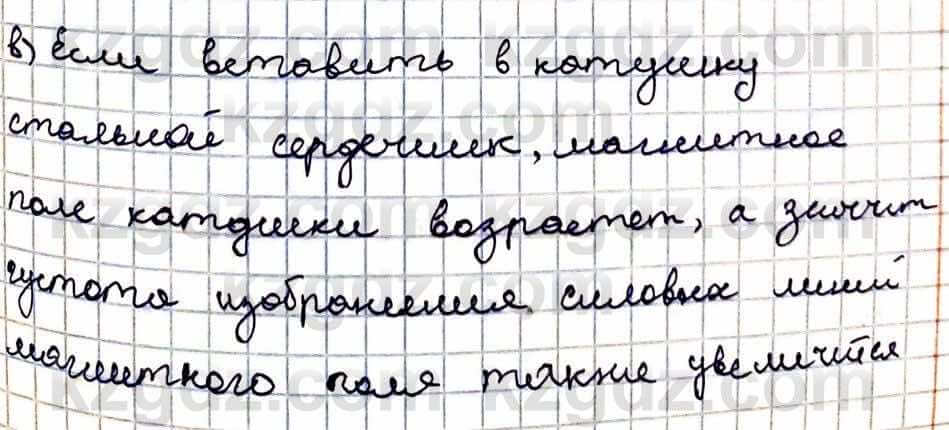 в) Если вставить в катушку
стальной сердечник, магнитное
поле катушки возрастет, а значит
густота изображения силовых линий
магнитного поля также увеличится